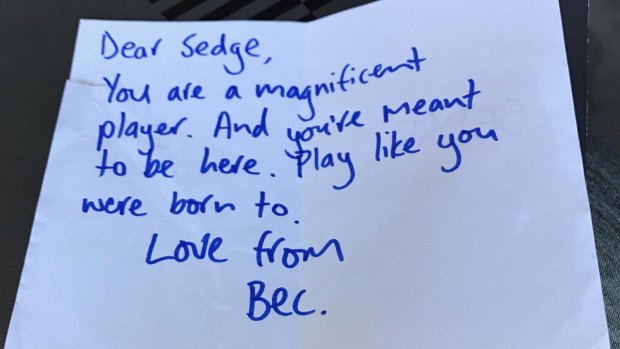 Dear Sedge,
You are a magnificent
player. And you're meant
to be here. Play like you
were born to.
Love from
Bec.